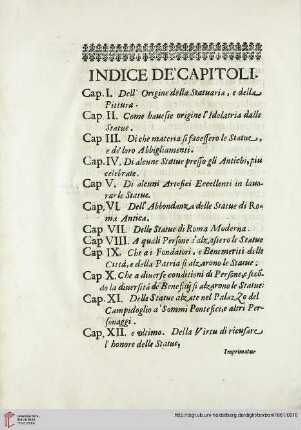 INDICE DE' CAPITOLI.
Cap. I. Dell' Origine della Statuaria, e della
Pittura.
Cap II. Come hauesse origine l'Idolatria dalle
Statue.
Cap III. Di che materia si facessero le Statue,
e de' loro Abbigliamenti.
Cap. IV. Di alcune Statue presso gli Antichi, piu
celebrate.
Cap V. Di alcuni Artefici Eccellenti in lauo-
rar le Statue.
Cap. VI. Dell' Abbondanza delle Statue di Ro-
ma Antica.
Cap VII. Delle Statue di Roma Moderna.
Cap VIII. A quali Persone s'alzassero le Statue
Cap IX. Che a i Fondatori, e Benemeriti delle
Città, e della Patria si alzarono le Statue;
Cap X. Che a diuerse conditioni di Persone, e secō-
do la diuersità de' Benefitij si alzarono le Statue:
Cap. XI. Delle Statue alzate nel Palazzo del
Campidoglio a' Sommi Pontefici, e altri Per-
sonaggi.
Cap. XII. e vltimo. Della Virtu di ricusare
l'honore delle Statue.
Imprimatur
UNIVERSITÄTS-
BIBLIOTHEK
HEIDELBERG